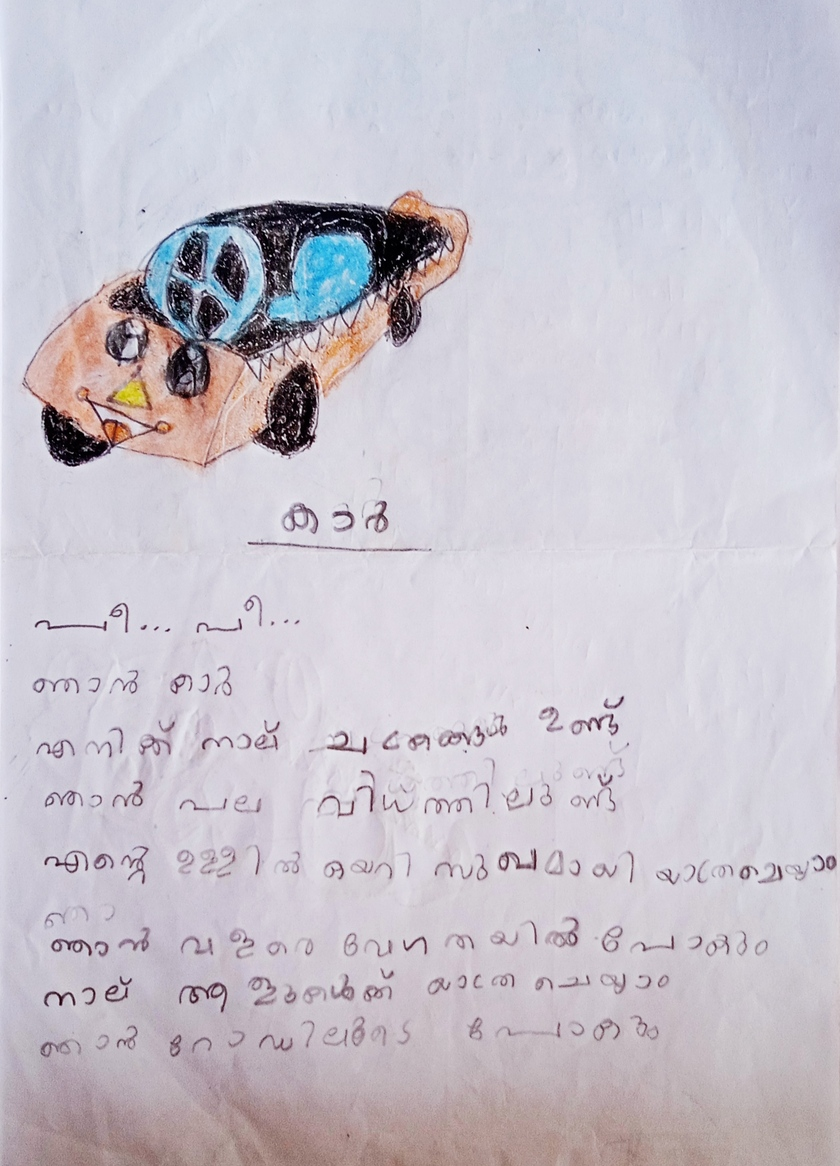 കാർ
പീ... പീ...
ഞാൻ കാർ
എനിക്ക് നാല് ചക്രങ്ങൾ ഉണ്ട്
ഞാൻ പല വിധത്തിലുണ്ട്
എന്റെ ഉള്ളിൽ കയറി സുഖമായി യാത്രചെയ്യാം
ഞാ
ഞാൻ വളരെ വേഗതയിൽ പോകും
നാല് ആളുകൾക്ക് യാത്ര ചെയ്യാം
ഞാൻ റോഡിലൂടെ പോകും